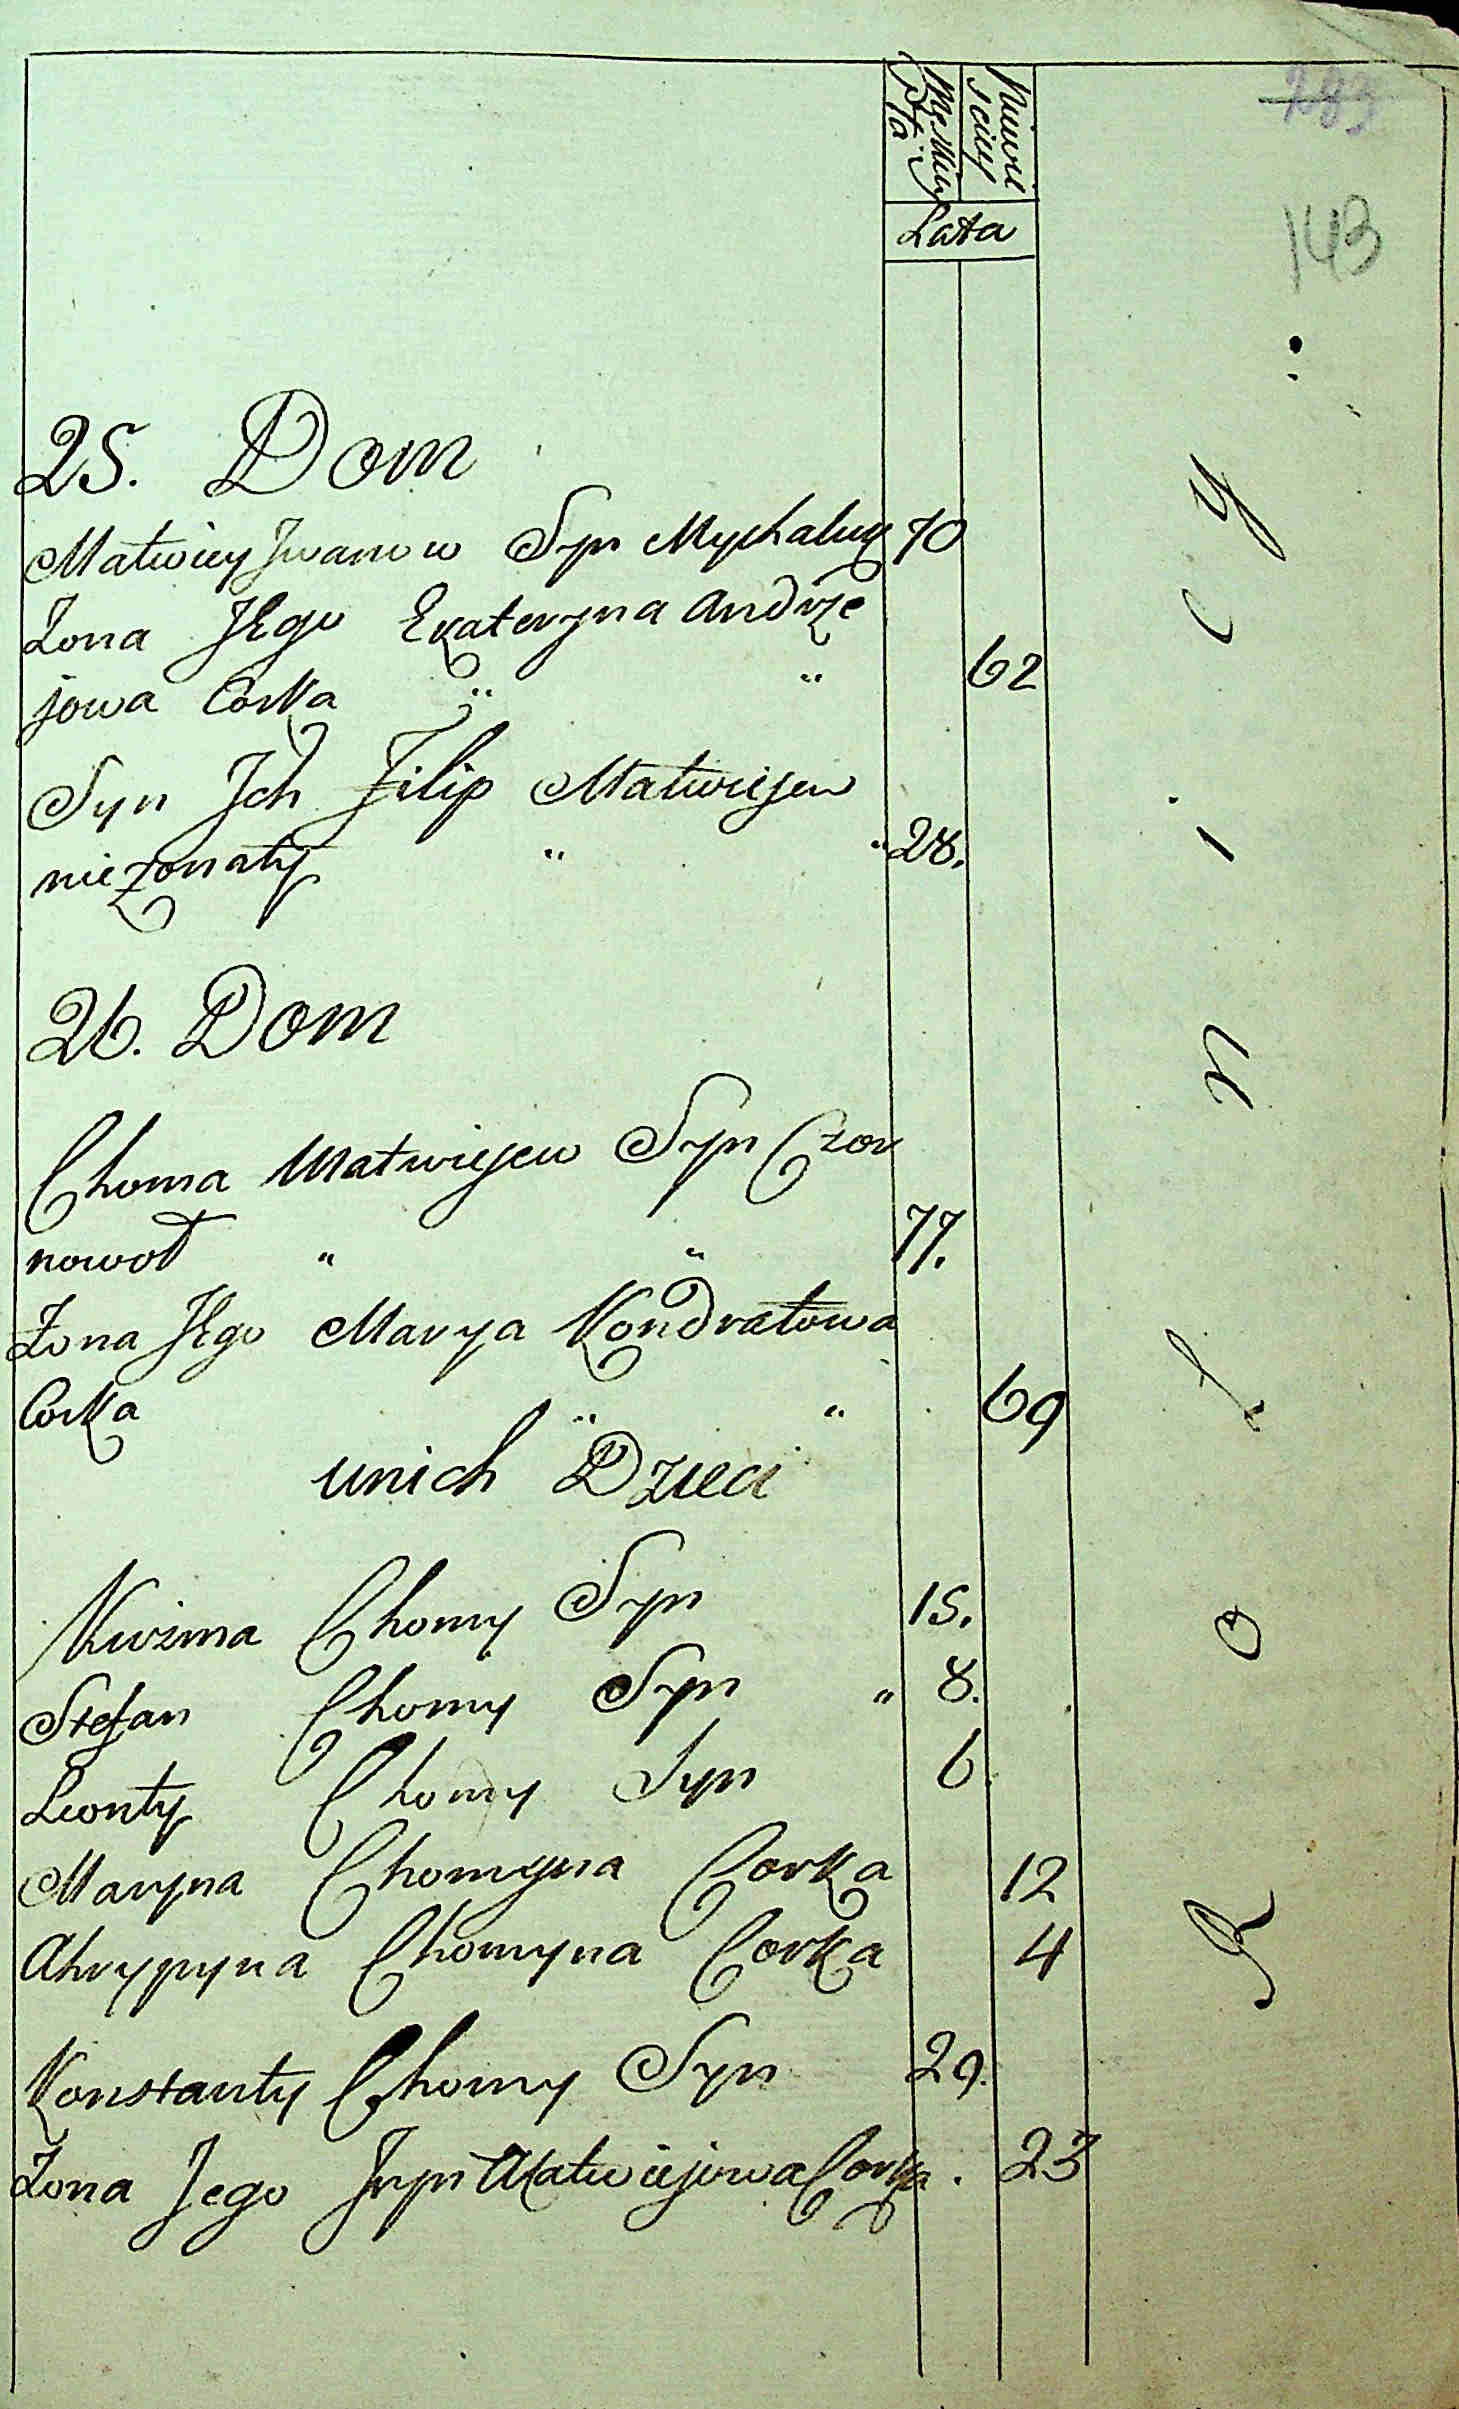 Męskiey
Płci
Lata
283
143
25. Dom
Matwiey Iwanow Syn Mychaluy 70
Zona JEgo Ekateryna Andrze
jowa Corka " " 62
Syn Ich Filip Matwiejew
niezonaty " " 28.
26. Dom
Choma Matwiejew Syn Czor
nowoł " " 77.
Zona JEgo Marya Kondratowa
Corka " " 69
unich Dzieci
Kuźma Chomy Syn 15.
Stefan Chomy Syn " 8.
Leonty Chomy Syn 6.
Maryna Chomyna Corka 12
Ahrypyna Chomyna Corka 4
Konstanty Chomy Syn 29.
Zona Jego Matwiejowa Corka. 23
R o l n i c y